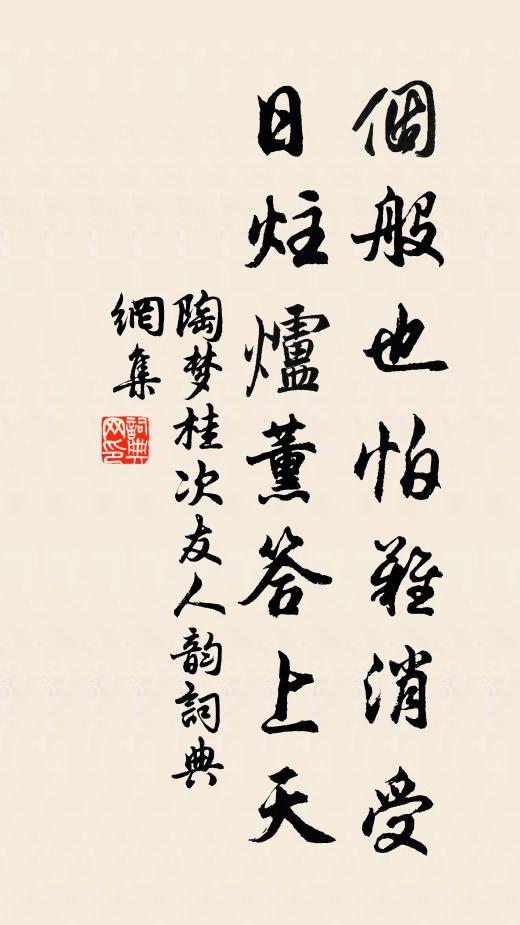 個般也怕難消受
日炷爐薰答上天
陶梦桂次友人韵詞典
網集
詞典
网印